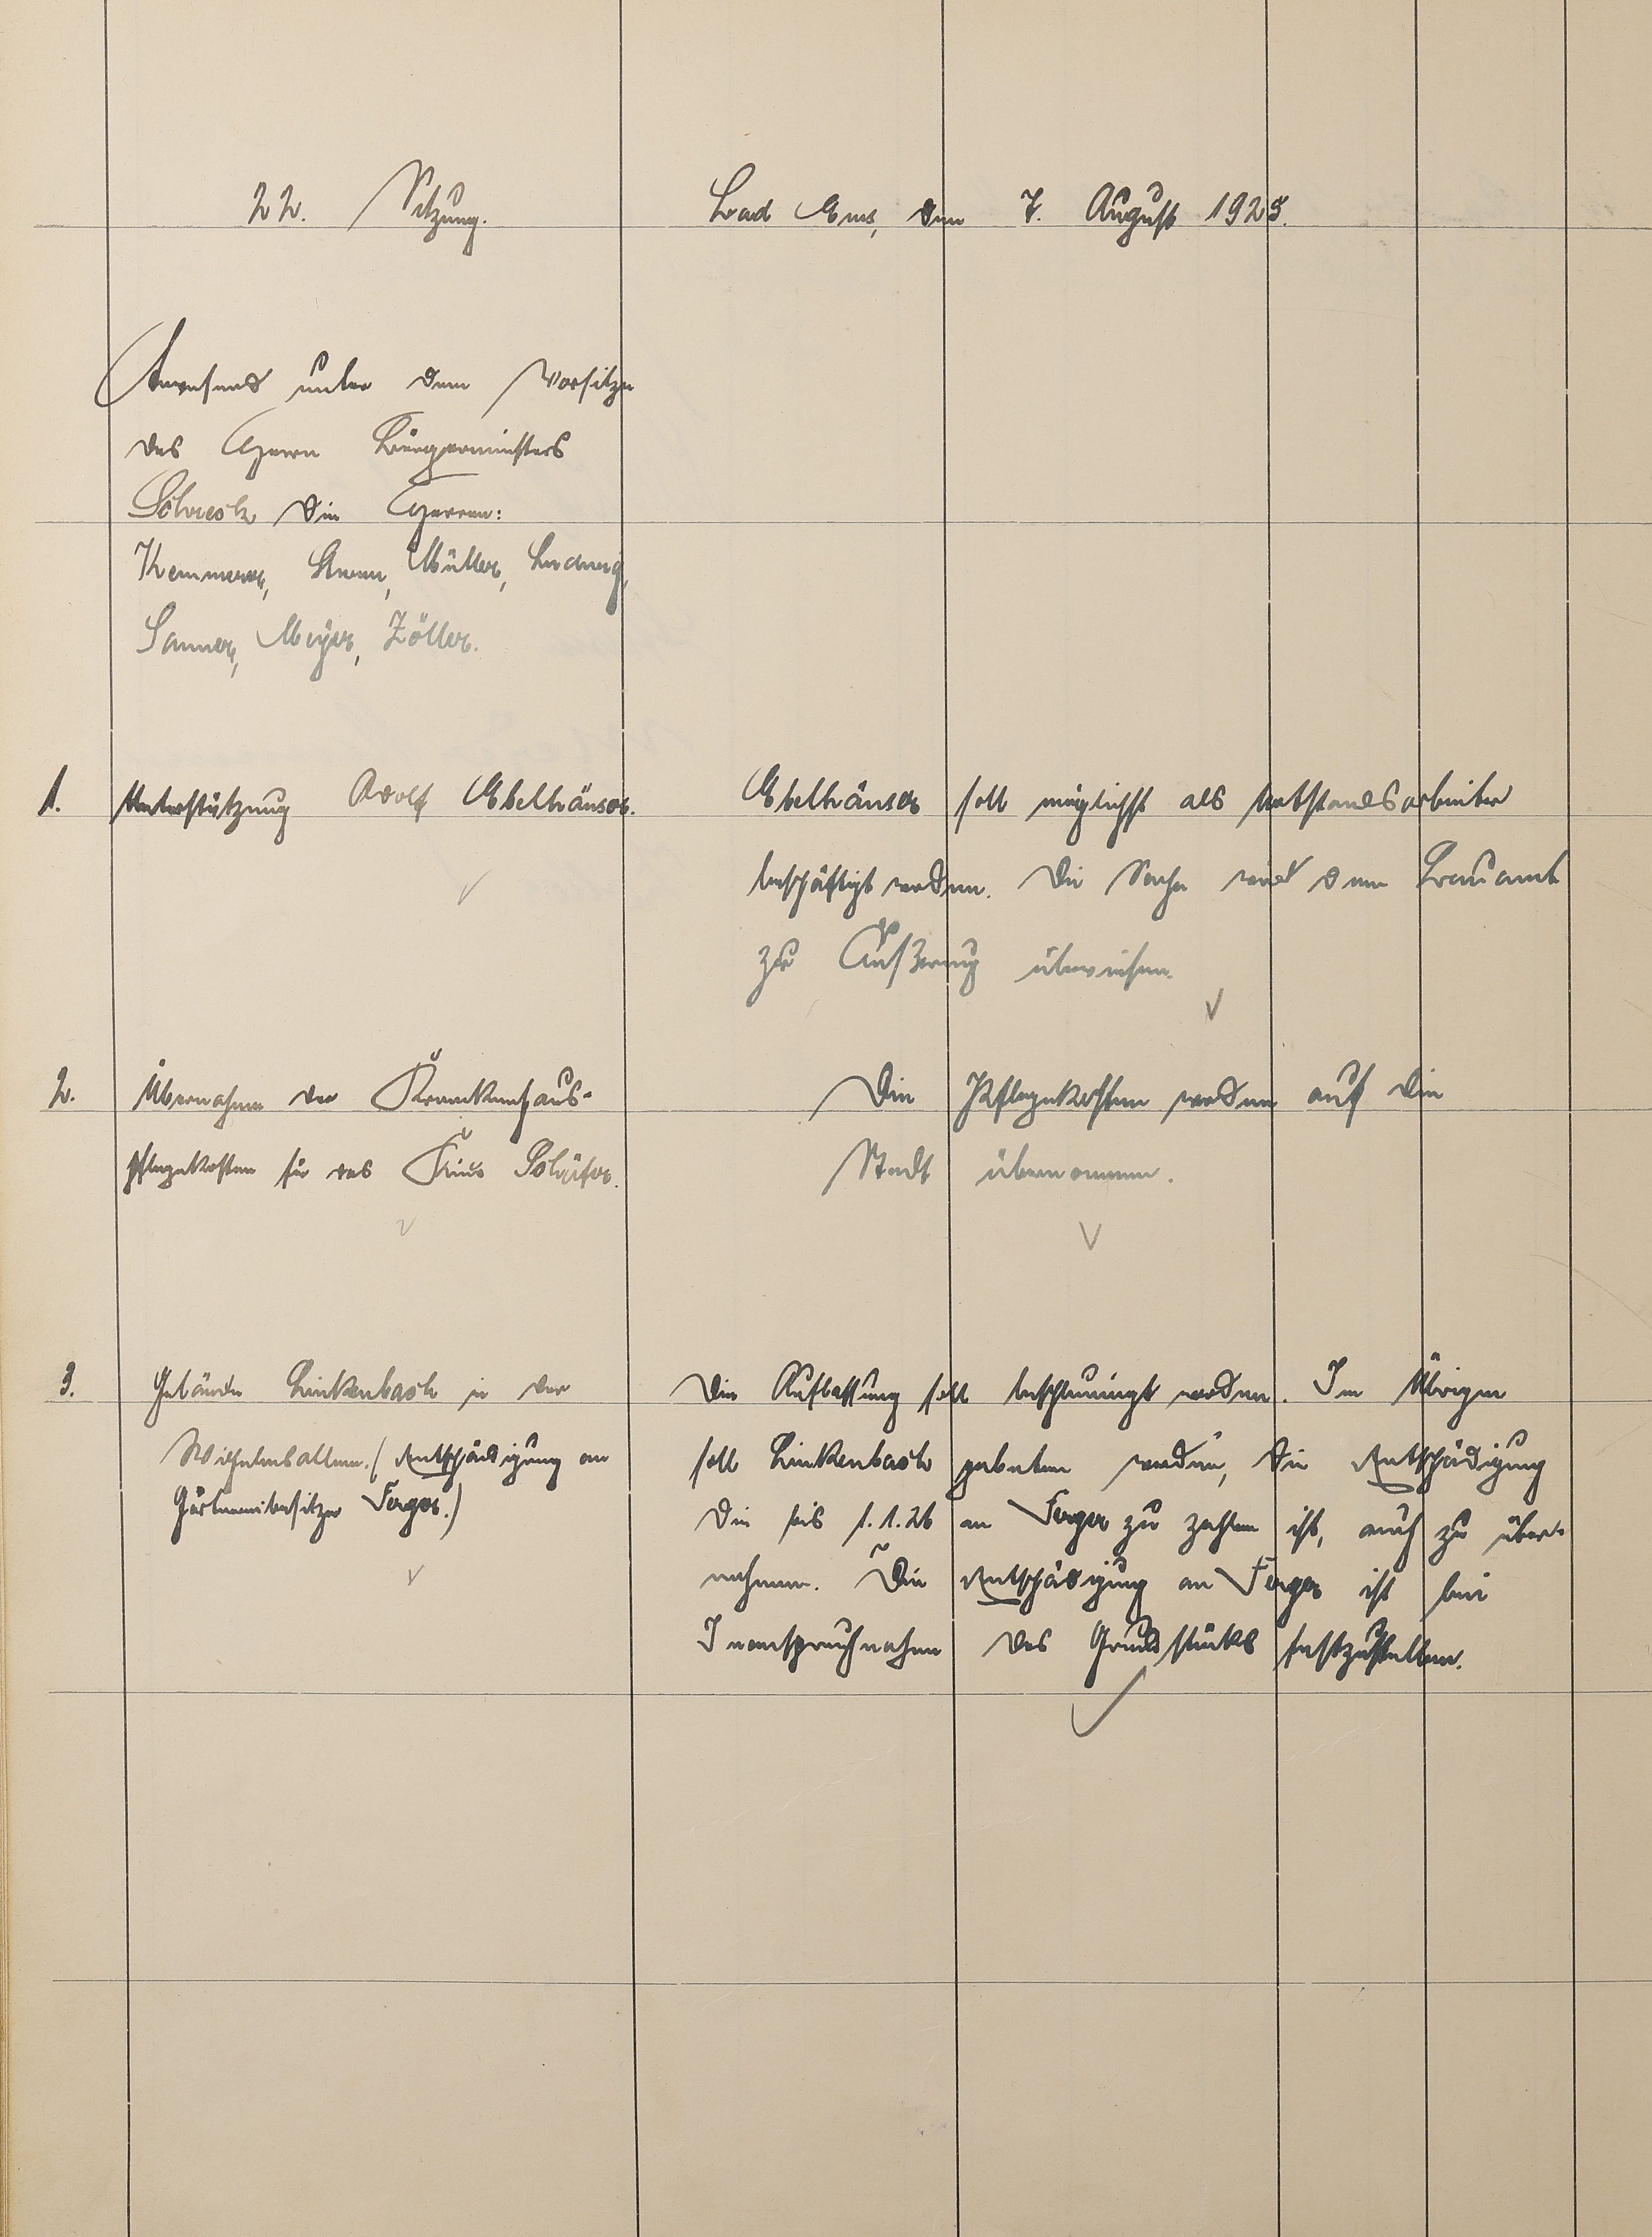 22. Sitzung.
Bad Ems, den 7. August 1925.
Anwesend unter dem Vorsitze
des Herrn Bürgermeisters
Schreck die Herren:
Kemmerer, Müller, Ludwig,
Sauner, Meyer, Zöller.
1. Unterstützung Adolf Ebelhäuser.
Ebelhäuser soll möglichst als Notstandsarbeiter
beschäftigt werden. Die Sache wird dem Bauamt
zur Äußerung überwiesen.
2. Übernahme der Krankenhaus-
pflegekosten für das Kind Schäfer.
Die Pflegekosten werden auf die
Stadt übernommen.
3. Gebäude Linkenbach in der
Wilhelmsallee. (Entschädigung an
Gärtnereibesitzer Ferger.)
Die Auflassung soll beschleunigt werden. Im Übrigen
soll Linkenbach gebeten werden, die Entschädigung
die bis 1.1.26 an Ferger zu zahlen ist, auch zu über-
nehmen. Die Entschädigung an Ferger ist bei
Inanspruchnahme des Grundstücks festzustellen.